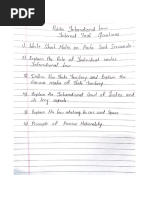 Public International Law
Internal Test Questions
1) Write Short Notes on Pacta Sunt Servanda
2) Explain the Role of Individual under
International Law.
3) Define the State Territory and Explain the
various modes of State Territory.
4) Explain the International Court of Justice and
its key aspects
5) Explain the law relating to air and Space
6) Principle of Passive Nationality.